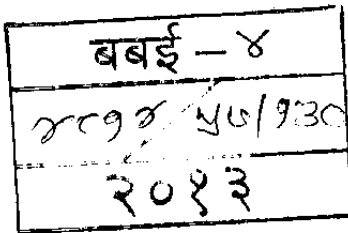 बबई – ४
४८१४ ५७/१३०
२०१३